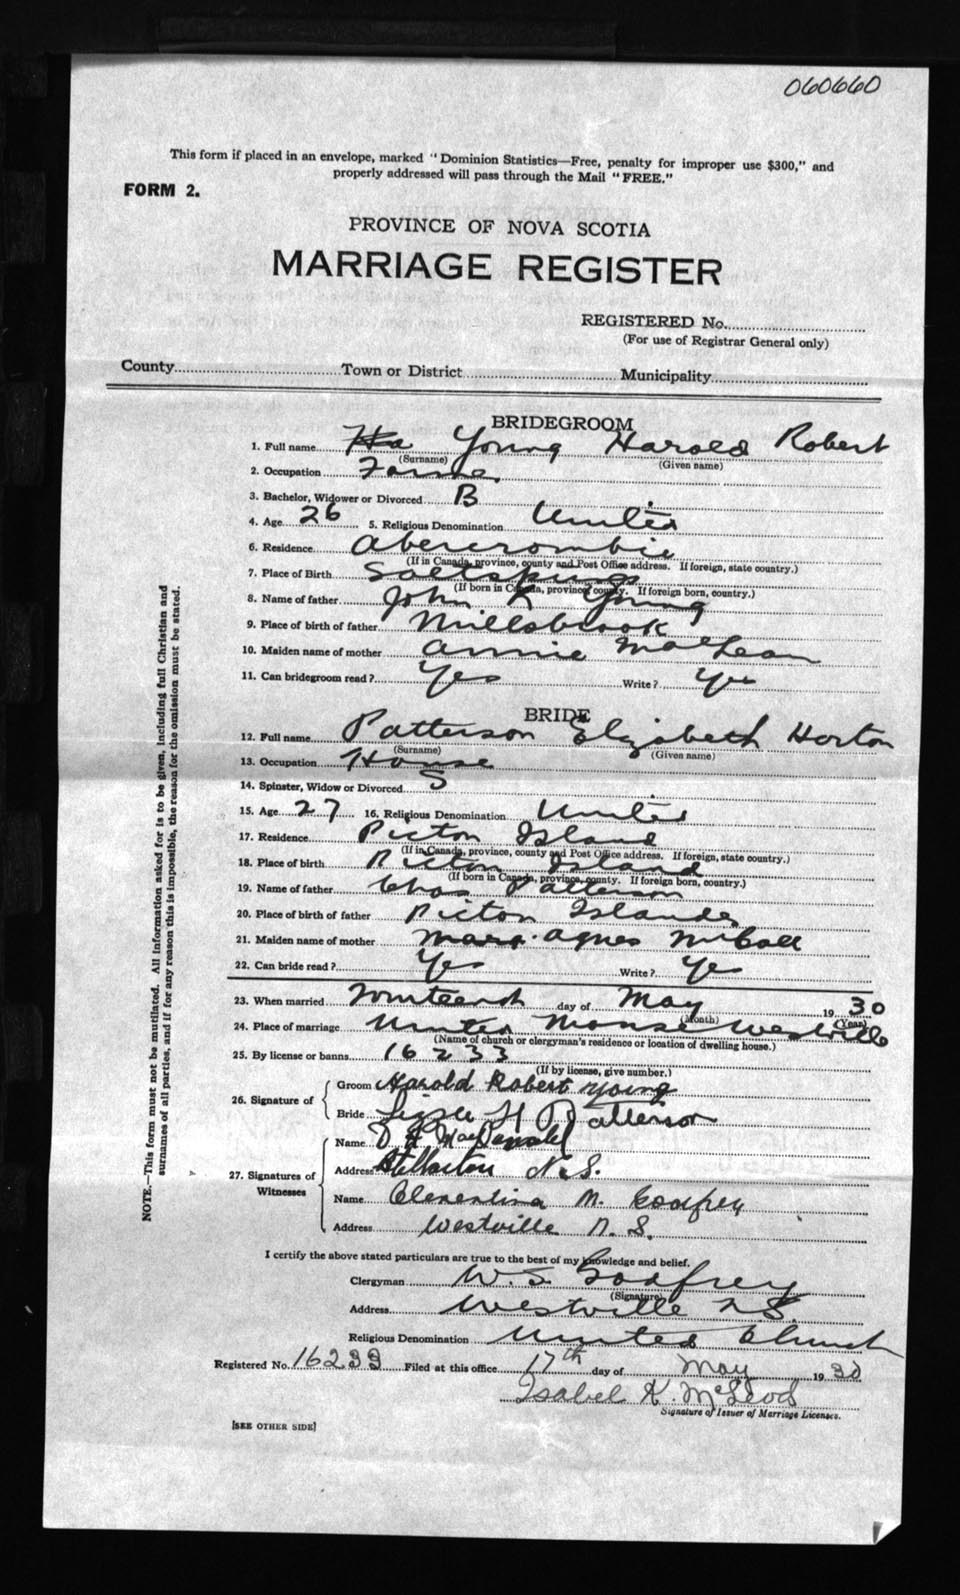 060660
This form if placed in an envelope, marked "Dominion Statistics—Free, penalty for improper use $300," and
properly addressed will pass through the Mail "FREE."
FORM 2.
PROVINCE OF NOVA SCOTIA
MARRIAGE REGISTER
REGISTERED No.
(For use of Registrar General only)
County Town or District Municipality
BRIDEGROOM
1. Full name Young Harold Robert
(Surname) (Given name)
2. Occupation
3. Bachelor, Widower or Divorced B
4. Age 26 5. Religious Denomination United
6. Residence Abercrombie
(If in Canada, province, county and Post Office address. If foreign, state country.)
7. Place of Birth Saltsprings
(If born in Canada, province, county. If foreign born, country.)
8. Name of father John Young
9. Place of birth of father Millsbrook
10. Maiden name of mother Annie MacLean
11. Can bridegroom read? Yes Write? Yes
BRIDE
12. Full name Patterson Elizabeth Horton
(Surname) (Given name)
13. Occupation House
14. Spinster, Widow or Divorced S
15. Age 27 16. Religious Denomination United
17. Residence Pictou Island
(If in Canada, province, county and Post Office address. If foreign, state country.)
18. Place of birth Pictou Island
(If born in Canada, province, county. If foreign born, country.)
19. Name of father Chas Patterson
20. Place of birth of father Pictou Island
21. Maiden name of mother Mary Agnes McCall
22. Can bride read? Yes Write? Yes
23. When married fourteenth day of May 19 30
(Month) (Year)
24. Place of marriage United Manse Westville
(Name of church or clergyman's residence or location of dwelling house.)
25. By license or banns 16233
(If by license, give number.)
26. Signature of
Groom Harold Robert Young
Bride Lizzie H Patterson
27. Signatures of Witnesses
Name MacDonald
Address Stellarton N.S.
Name Clementina M. Godfrey
Address Westville N.S.
I certify the above stated particulars are true to the best of my knowledge and belief.
Clergyman W. S. Godfrey
(Signature)
Address Westville N.S.
Religious Denomination United Church
Registered No. 16233 Filed at this office 17th day of May 19 30
Isabel K. McLeod
Signature of Issuer of Marriage Licenses.
[SEE OTHER SIDE]
NOTE.—This form must not be mutilated. All information asked for is to be given, including full Christian and
surnames of all parties, and if for any reason this is impossible, the reason for the omission must be stated.